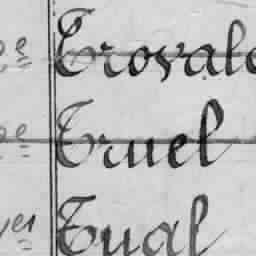 Trovale
2e Truel
Tual